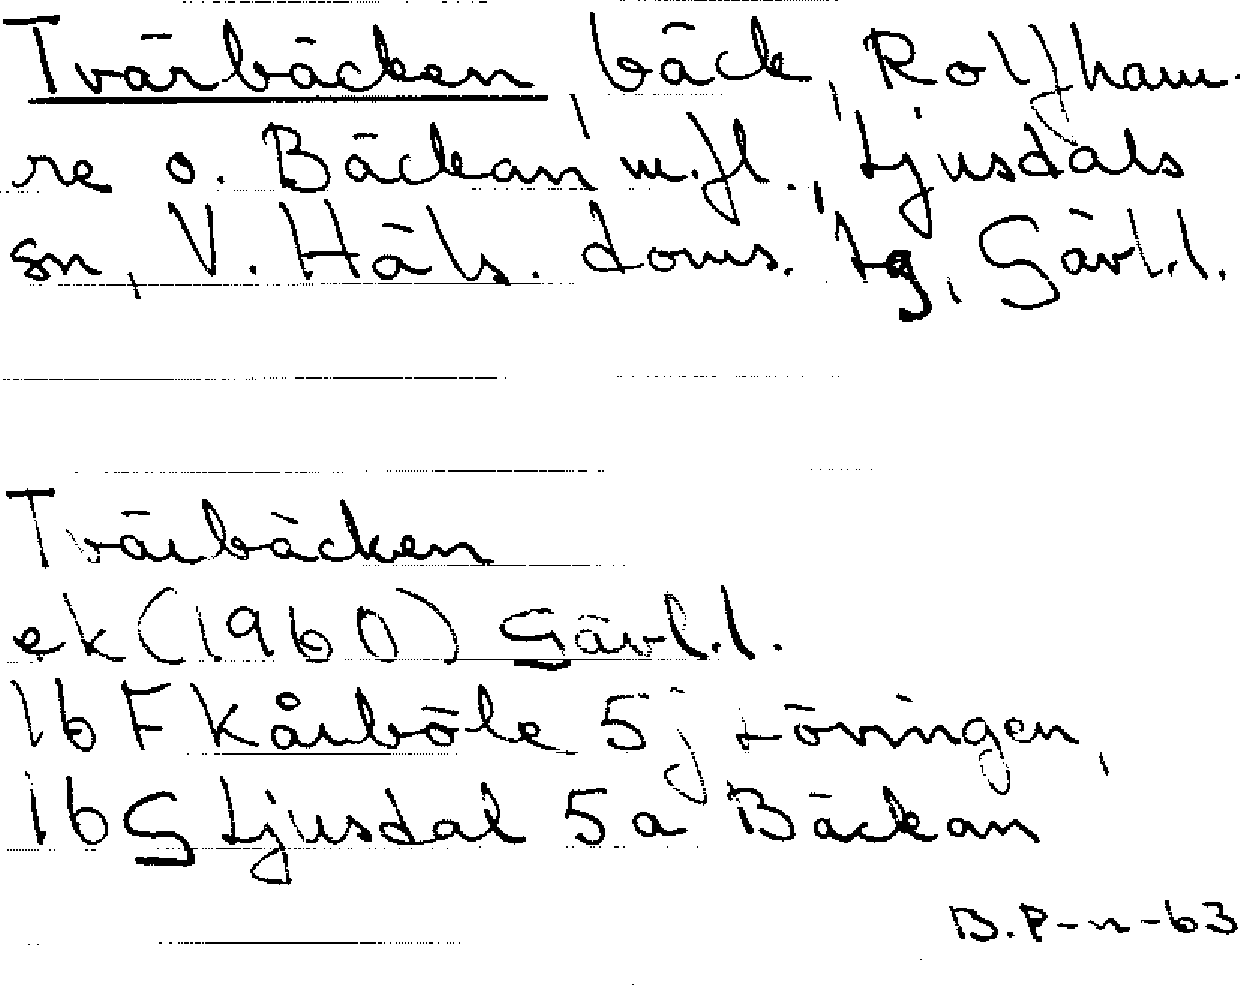 Tvärbäcken, bäck, Rolfham-
re o. Bäckan m.fl., Ljusdals
sn, V. Häls. doms. Lg, Gävl.l.
Tvärbäcken
ek (1960) Gävl.l.
16 F Kårböle 5j Lövringen,
16 G Ljusdal 5a Bäckan
B.P-n-63